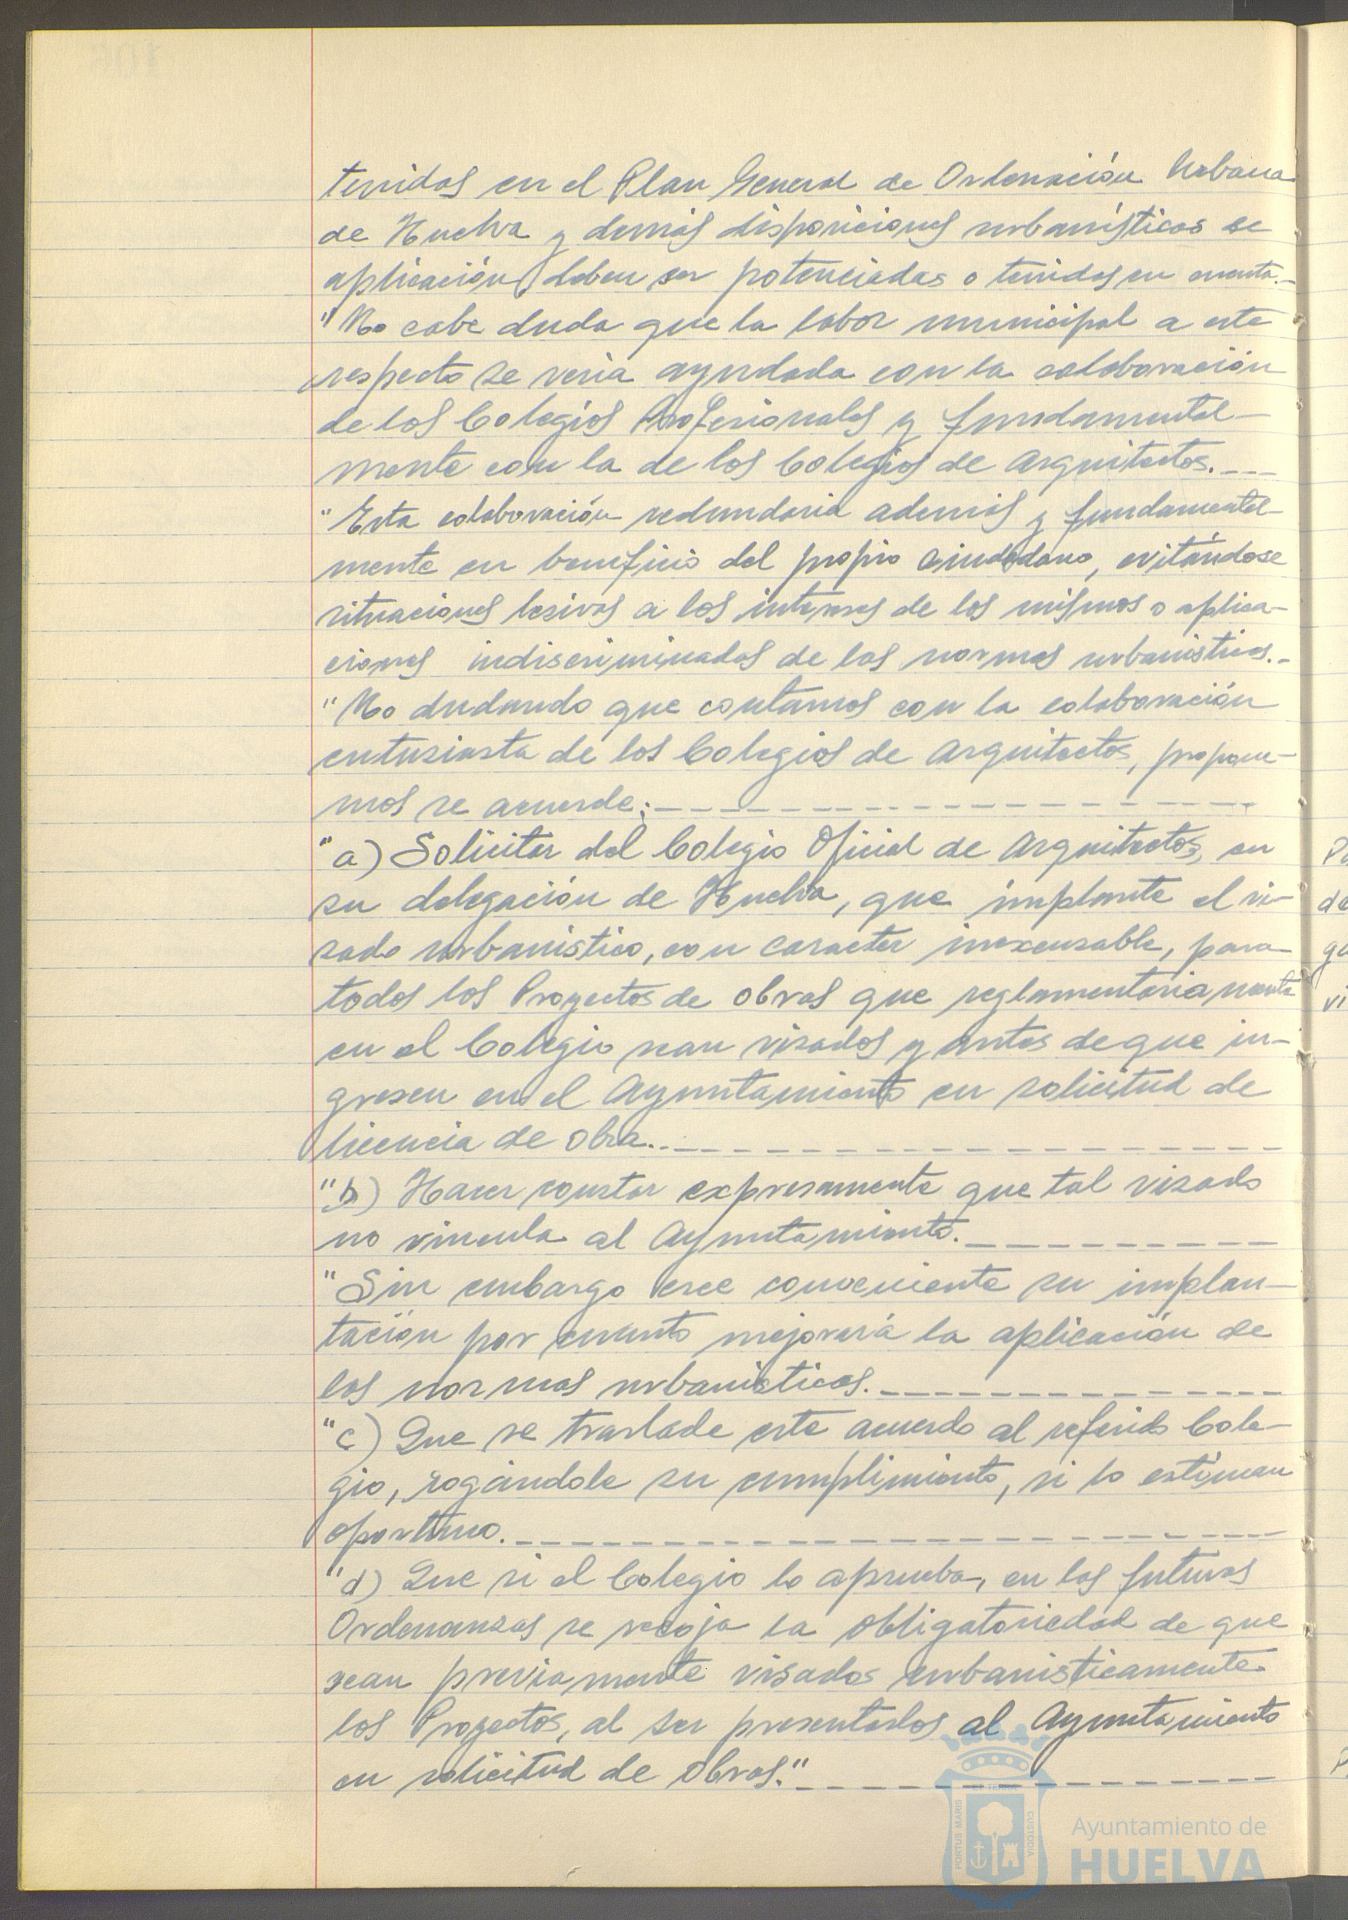 tenidas en el Plan General de Ordenación Urbana
de Huelva y demás disposiciones urbanísticas de
aplicación, deben ser potenciadas o tenidas en cuenta.-
"No cabe duda que la labor municipal a este
respecto se vería ayudada con la colaboración
de los Colegios Profesionales y fundamental-
mente con la de los Colegios de Arquitectos.---
"Esta colaboración redundaria además y fundamental-
mente en beneficio del propio ciudadano, evitándose
situaciones lesivas a los intereses de los mismos o aplica-
ciones indiscriminadas de las normas urbanisticas.-
"No dudando que contamos con la colaboración
entusiasta de los Colegios de Arquitectos, propone-
mos se acuerde:---
"a) Solicitar del Colegio Oficial de Arquitectos, en
su delegación de Huelva, que implante el vi-
sado urbanistico, con caracter inexcusable, para
todos los Proyectos de obras que reglamentariamente
en el Colegio sean visados y antes de que in-
gresen en el Ayuntamiento en solicitud de
licencia de obra.---
"b) Hacer constar expresamente que tal visado
no vincula al Ayuntamiento.---
"Sin embargo cree conveniente su implan-
tación por cuanto mejorará la aplicación de
las normas urbanisticas.---
"c) Que se traslade este acuerdo al referido Cole-
gio, rogándole su cumplimiento, si lo estiman
oportuno.---
"d) Que si el Colegio lo aprueba, en las futuras
Ordenanzas se recoja la obligatoriedad de que
sean previamente visados urbanisticamente
los Proyectos, al ser presentados al Ayuntamiento
en solicitud de obras."---
PORTUS MARIS
CUSTODIA
Ayuntamiento de
HUELVA